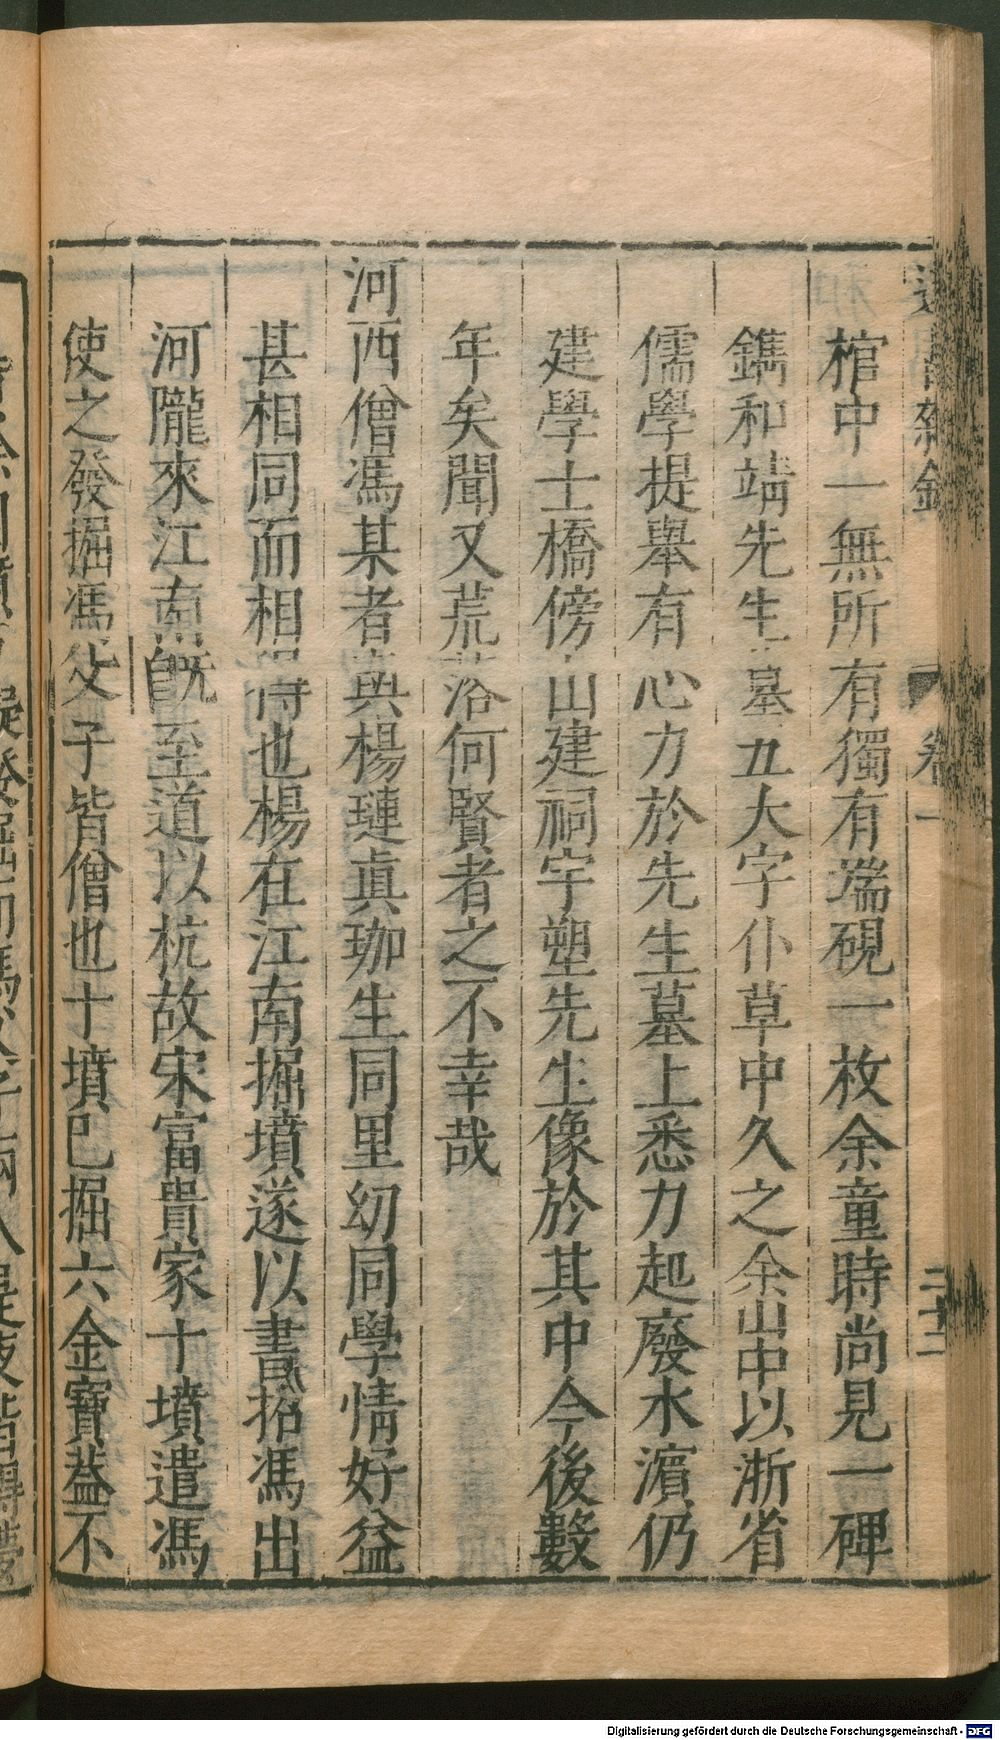 棺中一無所有獨有端硯一枚余童時尚見一碑
鐫和靖先生墓五大字仆草中久之余山中以浙省
儒學提舉有心力於先生墓上悉力起廢水濵仍
建學士橋傍山建祠宇塑先生像於其中今後數
年矣聞又荒落何賢者之不幸哉
河西僧馮某者與楊璉真珈生同里幼同學情好益
甚相同而相得也楊在江南掘墳遂以書招馮出
河隴來江南既至道以杭故宋富貴家十墳遣馮
使之發掘馮父子皆僧也十墳已掘六金寶葢不
卷一
二十二
Digitalisierung gefördert durch die Deutsche Forschungsgemeinschaft - DFG